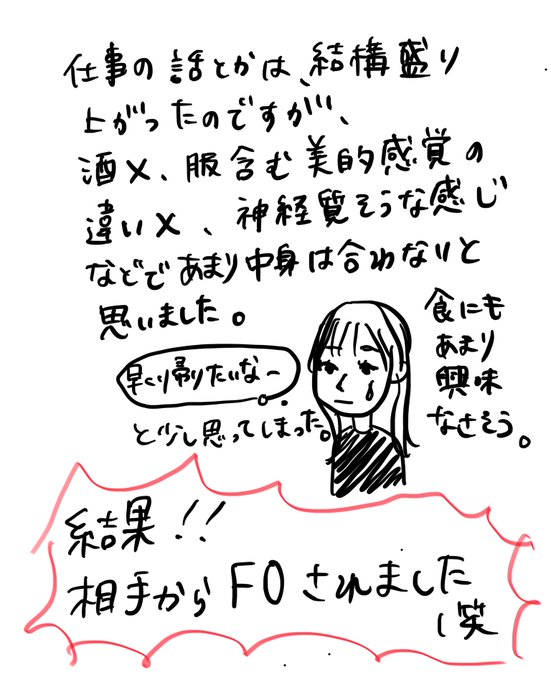 仕事の話とかは、結構盛り
上がったのですが、
酒×、服含む美的感覚の
違い×、神経質そうな感じ
などであまり中身は合わないと
思いました。
食にも
あまり
興味
なさそう。
早くり帰りたいな〜
と少し思ってしまった。
結果!!
相手からFOされました
(笑